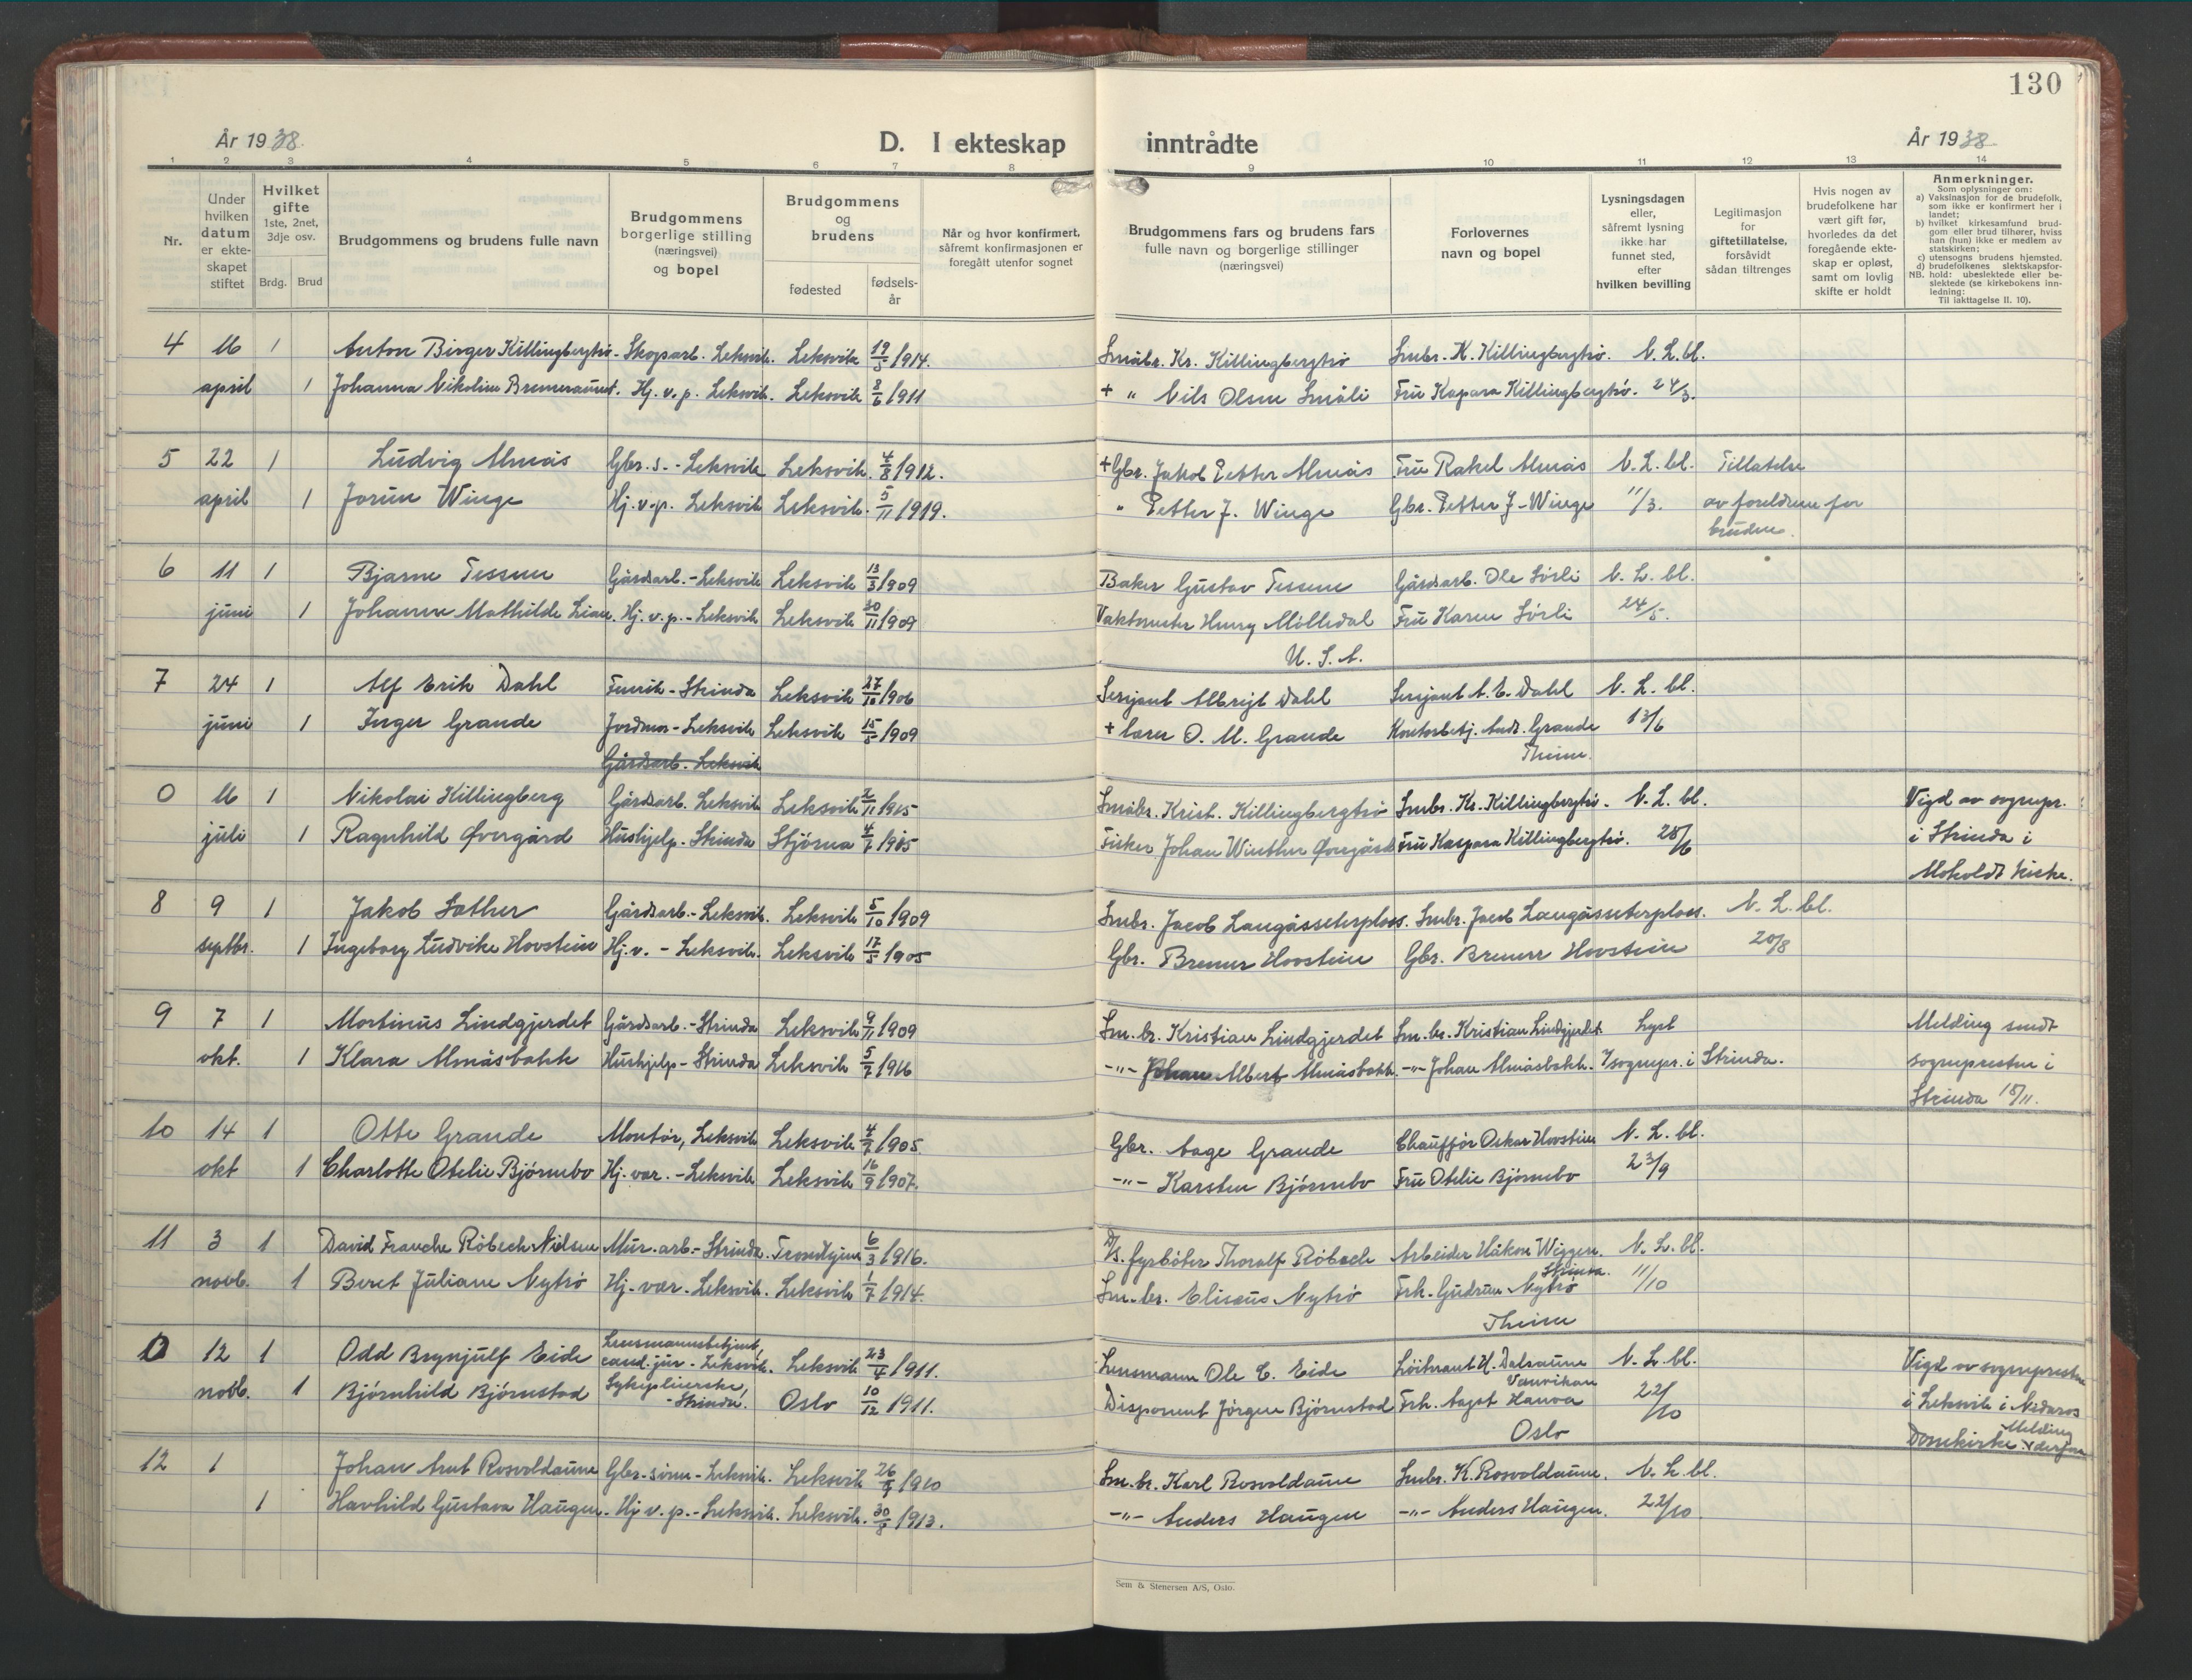 130
År 1938.
D. I ekteskap inntrådte
År 1938
1 2 3 4 5 6 7 8 9 10 11 12 13 14
Nr.
Under hvilken datum er ekte-skapet stiftet
Hvilket gifte 1ste, 2net, 3dje osv.
Brdg. Brud
Brudgommens og brudens fulle navn
Brudgommens borgerlige stilling (næringsvei) og bopel
Brudgommens og brudens
fødested
fødsels-år
Når og hvor konfirmert, såfremt konfirmasjonen er foregått utenfor sognet
Brudgommens fars og brudens fars fulle navn og borgerlige stillinger (næringsvei)
Forlovernes navn og bopel
Lysningsdagen eller, såfremt lysning ikke har funnet sted, efter hvilken bevilling
Legitimasjon for giftetillatelse, forsåvidt sådan tiltrenges
Hvis nogen av brudefolkene har vært gift før, hvorledes da det foregående ekte-skap er opløst, samt om lovlig skifte er holdt
Anmerkninger.
Som oplysninger om:
a) Vaksinasjon for de brudefolk, som ikke er konfirmert her i landet;
b) hvilket kirkesamfund brud-gom eller brud tilhører, hvis han (hun) ikke er medlem av statskirken;
c) utensogns brudens hjemsted.
d) brudefolkenes slektskapsfor-hold: ubeslektede eller be-slektede (se kirkebokens inn-ledning:
NB.
Til iakttagelse II. 10).
4 16 1 Anton Birger Killingbergtrø - Skogsarb. Leksvik. Leksvik 19/5 1914. Småbr. Kr. Killingbergtrø Smbr. K. Killingbergtrø. N. L. bl.
april 1 Johanna Nikoline Bremeraunet. Hj. v. p. Leksvik. Leksvik 8/6 1911 + " Nils Olsen Småli Fru Kaspara Killingbergtrø. 24/3.
5 22 1 Ludvig Almås Gbr. s. - Leksvik Leksvik. 4/8 1912. + Gbr. Jakob Petter Almås Fru Rakel Almås N. L. bl. Tillatelse
april 1 Jorun Winge Hj. v. p. Leksvik Leksvik. 5/11 1919. " Petter J. Winge Gbr. Petter J. Winge 11/3. av foreldrene for
bruden.
6 11 1 Bjarne Tessem Gårdsarb. - Leksvik Leksvik 13/3 1909 Baker Gustav Tessem Gårdsarb. Ole Sørli N. L. bl.
juni 1 Johanne Mathilde Lian. Hj. v. p. - Leksvik Leksvik 30/11 1909 Vaktmester Henry Mølledal Fru Karen Sørli 24/5.
U. S. A.
7 24 1 Alf Erik Dahl Fenrik - Strinda Leksvik 27/10 1906 Sersjant Albrigt Dahl Sersjant A. E. Dahl N. L. bl.
juni 1 Inger Grande Jordmor - Leksvik Leksvik 15/5 1909 + lærer O. M. Grande Kontorbetj. Andr. Grande 13/6
Gårdsarb. Leksvik
Theim.
0 16 1 Nikolai Killingberg Gårdsarb. Leksvik Leksvik 2/11 1915 Småbr. Krist. Killingbergtrø Smbr. Kr. Killingbergtrø. N. L. bl. Vigd av sognepr.
juli 1 Ragnhild Øvergård Hushjelp. Strinda Stjørna 4/7 1915 Fisker Johan Winther Øvergård Fru Kaspara Killingbergtrø. 28/6 i Strinda i
Moholdt kirke.
8 9 1 Jakob Sæther Gårdsarb. - Leksvik. Leksvik 5/10 1909 Smbr. Jacob Langåsseterplass. Smbr. Jacob Langåsseterplass. N. L. bl.
septbr. 1 Ingeborg Ludvike Hovstein Hj. v. - Leksvik. Leksvik 17/5 1905 Gbr. Bremer Hovstein Gbr. Bremer Hovstein 20/8
9 7 1 Mortinus Lindgjerdet Gårdsarb. - Strinda Leksvik 9/11 1909 Sm. br. Kristian Lindgjerdet Sm. br. Kristian Lindgjerdet Lyst Melding sendt
okt. 1 Klara Almåsbakk Hushjelp - Strinda Leksvik 5/7 1916 -"- Johan Albert Almåsbakk. -"- Johan Almåsbakk. sognepr. i Strinda. sognepresten i
Strinda 15/11.
10 14 1 Otto Grande Montør, Leksvik Leksvik 4/7 1905. Gbr. Aage Grande Chauffør Oskar Hovstein N. L. bl.
okt 1 Charlotte Otelie Bjørnebo Hj. vær. - Leksvik Leksvik 16/9 1907. -"- Karsten Bjørnebo Fru Otelie Bjørnebo 23/9
11 3 1 David Franche Røbech Nielsen Mur. arb. - Strinda. Trondhjem 6/3 1916. fyrbøter Thoralf Røbech Arbeider Håkon Wiggen. N. L. bl.
Strinda.
novb. 1 Beret Juliane Nytrø Hj. vær. Leksvik. Leksvik 1/7 1914. Sm. br. Elisæus Nytrø Frk. Gudrun Nytrø 11/10
Theim
0 12 1 Odd Brynjulf Eide Lensmannsbetjent, cand. jur - Leksvik. Leksvik 23/4 1911. Lensmann Ole C. Eide Løitnant H. Dalsaune N. L. bl. Vigd av sognepresten
Vanvikan
novb. 1 Bjørnhild Bjørnstad Sykepleierske, - Strinda. Oslo 10/12 1911. Disponent Jørgen Bjørnstad Frk. Aagot Hanva 22/10 i Leksvik i Nidaros
Oslo Domkirke. Melding
12 1 Johan Arnt Rosvoldaune Gbr. sønn - Leksvik. Leksvik 26/9 1910 Sm. br. Karl Rosvoldaune Smbr. K. Rosvoldaune. N. L. bl.
1 Havhild Gustava Haugen. Hj. v. p. - Leksvik. Leksvik. 30/8 1913. -"- Anders Haugen -"- Anders Haugen. 22/10
Sem & Stenersen A/S, Oslo.